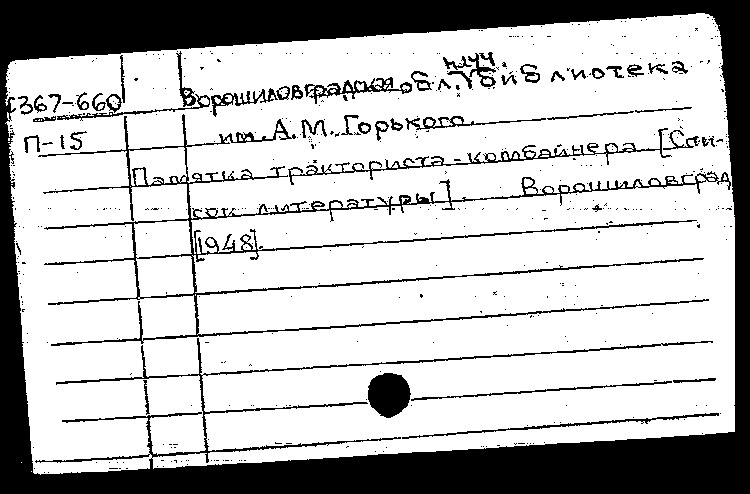 науч.
С367-660 Ворошиловградская обл. библиотека
П-15 им. А.М. Горького.
Памятка тракториста-комбайнера [Спи-
сок литературы]. Ворошиловград
[1948].